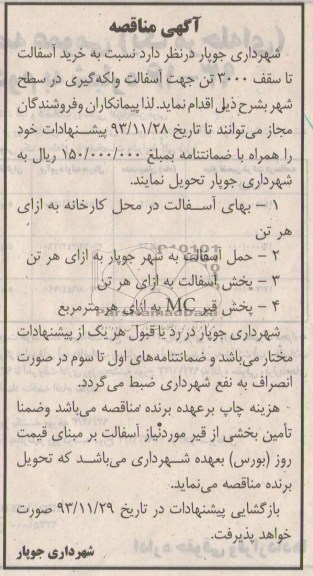 آگهی مناقصه
شهرداری جوپار درنظر دارد نسبت به خرید آسفالت
تا سقف ۳۰۰۰ تن جهت آسفالت ولکه‌گیری در سطح
شهر بشرح ذیل اقدام نماید. لذا پیمانکاران وفروشندگان
مجاز می‌توانند تا تاریخ ۹۳/۱۱/۲۸ پیشنهادات خود
را همراه با ضمانتنامه بمبلغ ۱۵۰/۰۰۰/۰۰۰ ریال به
شهرداری جوپار تحویل نمایند.
۱ – بهای آسفالت در محل کارخانه به ازای
هر تن
۲ – حمل آسفالت به شهر جوپار به ازای هر تن
۳ – پخش آسفالت به ازای هر تن
۴ – پخش قیر MC به ازای هر مترمربع
شهرداری جوپار در رد یا قبول هر یک از پیشنهادات
مختار می‌باشد و ضمانتنامه‌های اول تا سوم در صورت
انصراف به نفع شهرداری ضبط می‌گردد.
هزینه چاپ برعهده برنده مناقصه می‌باشد وضمنا
تأمین بخشی از قیر موردنیاز آسفالت بر مبنای قیمت
روز (بورس) بعهده شهرداری می‌باشد که تحویل
برنده مناقصه می‌نماید.
بازگشایی پیشنهادات در تاریخ ۹۳/۱۱/۲۹ صورت
خواهد پذیرفت.
شهرداری جوپار